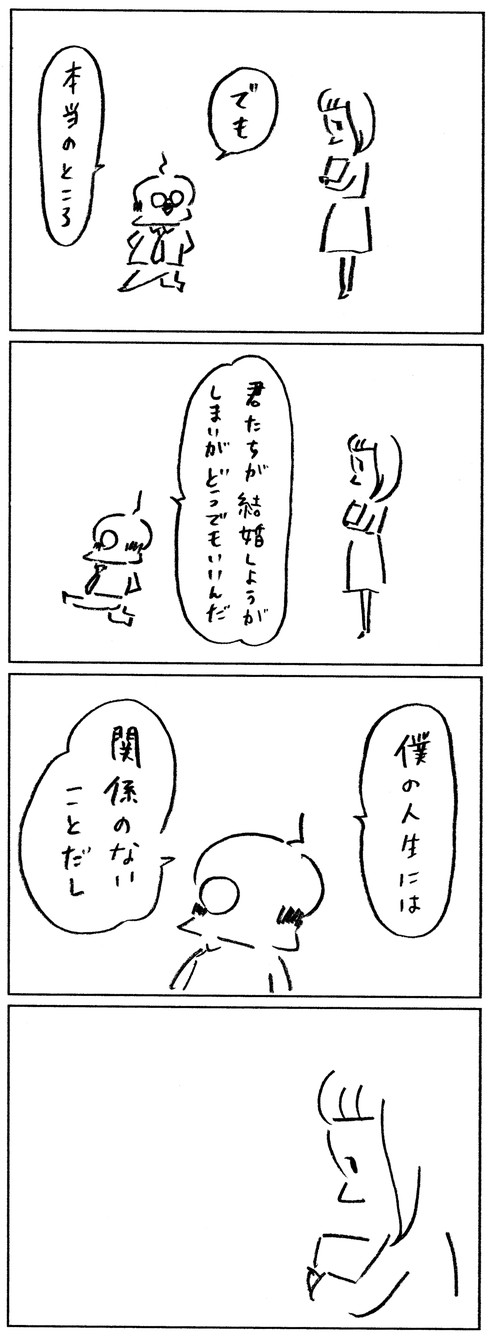 でも
本当のところ
君たちが結婚しようが
しまいがどうでもいいんだ
僕の人生には
関係のない
ことだし